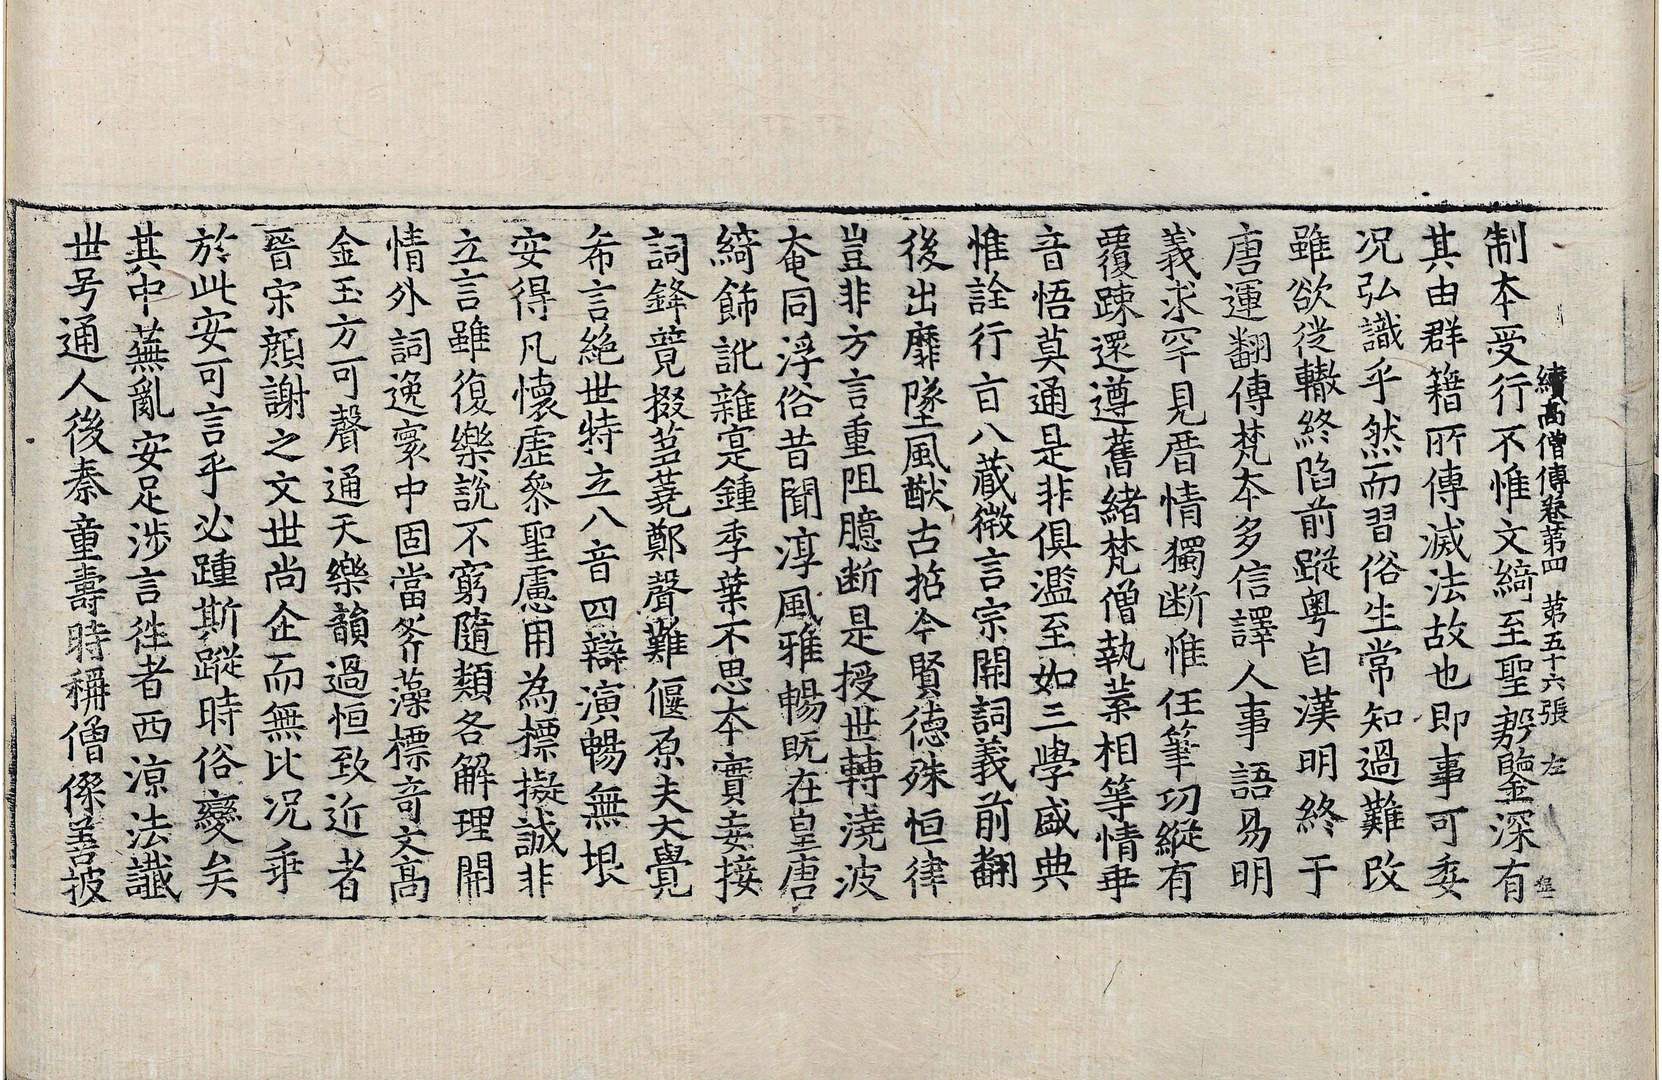 續高僧傳卷第四　第五十六張　左
制本受行不惟文綺至聖殷鑒深有
其由群籍所傳滅法故也即事可委
况弘識乎然而習俗生常知過難改
雖欲徙轍終陷前蹤粤自漢明終于
唐運翻傳梵本多信譯人事語易明
義求罕見厝情獨断惟任筆功縱有
覆踈還遵舊緒梵僧執葉相等情乖
音悟莫通是非俱濫至如三學盛典
惟詮行旨八藏微言宗開詞義前翻
後出靡墜風猷古拈今賢德殊恒律
豈非方言重阻臆断是授世轉澆波
奄同浮俗昔聞淳風雅暢既在皇唐
綺飾訛雜寔鍾季葉不思本實妄接
詞鋒競掇芻蕘鄭聲難偃原夫大覺
希言絶世特立八音四辯演暢無垠
安得凡懷虛參聖慮用為標擬誠非
立言雖復樂說不窮隨類各解理開
情外詞逸寰中固當斧藻標奇文高
金玉方可聲通天樂韻過恒致近者
晉宋顔謝之文世尚企而無比况乖
於此安可言乎必踵斯蹤時俗變矣
其中蕪亂安足涉言徃者西涼法讖
世号通人後秦童壽時稱僧傑善披